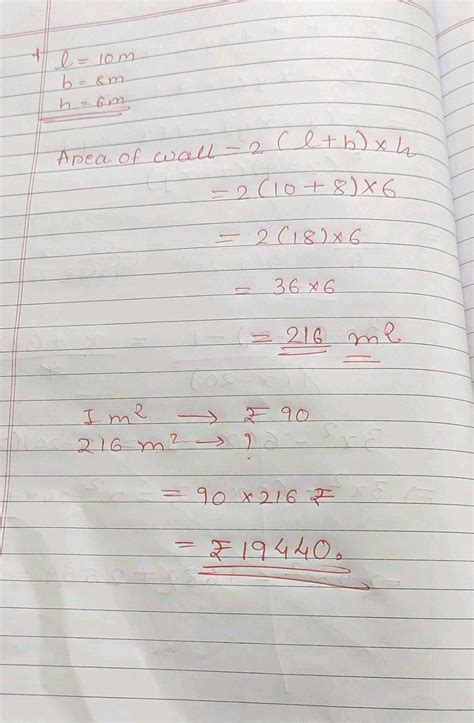 l = 10m
b = 8m
h = 6m
Area of wall - 2 (l+b) × h
= 2(10+8)×6
= 2(18)×6
= 36×6
= 216 m²
1 m² → ₹ 90
216 m² → ?
= 90 × 216 ₹
= ₹ 19440.